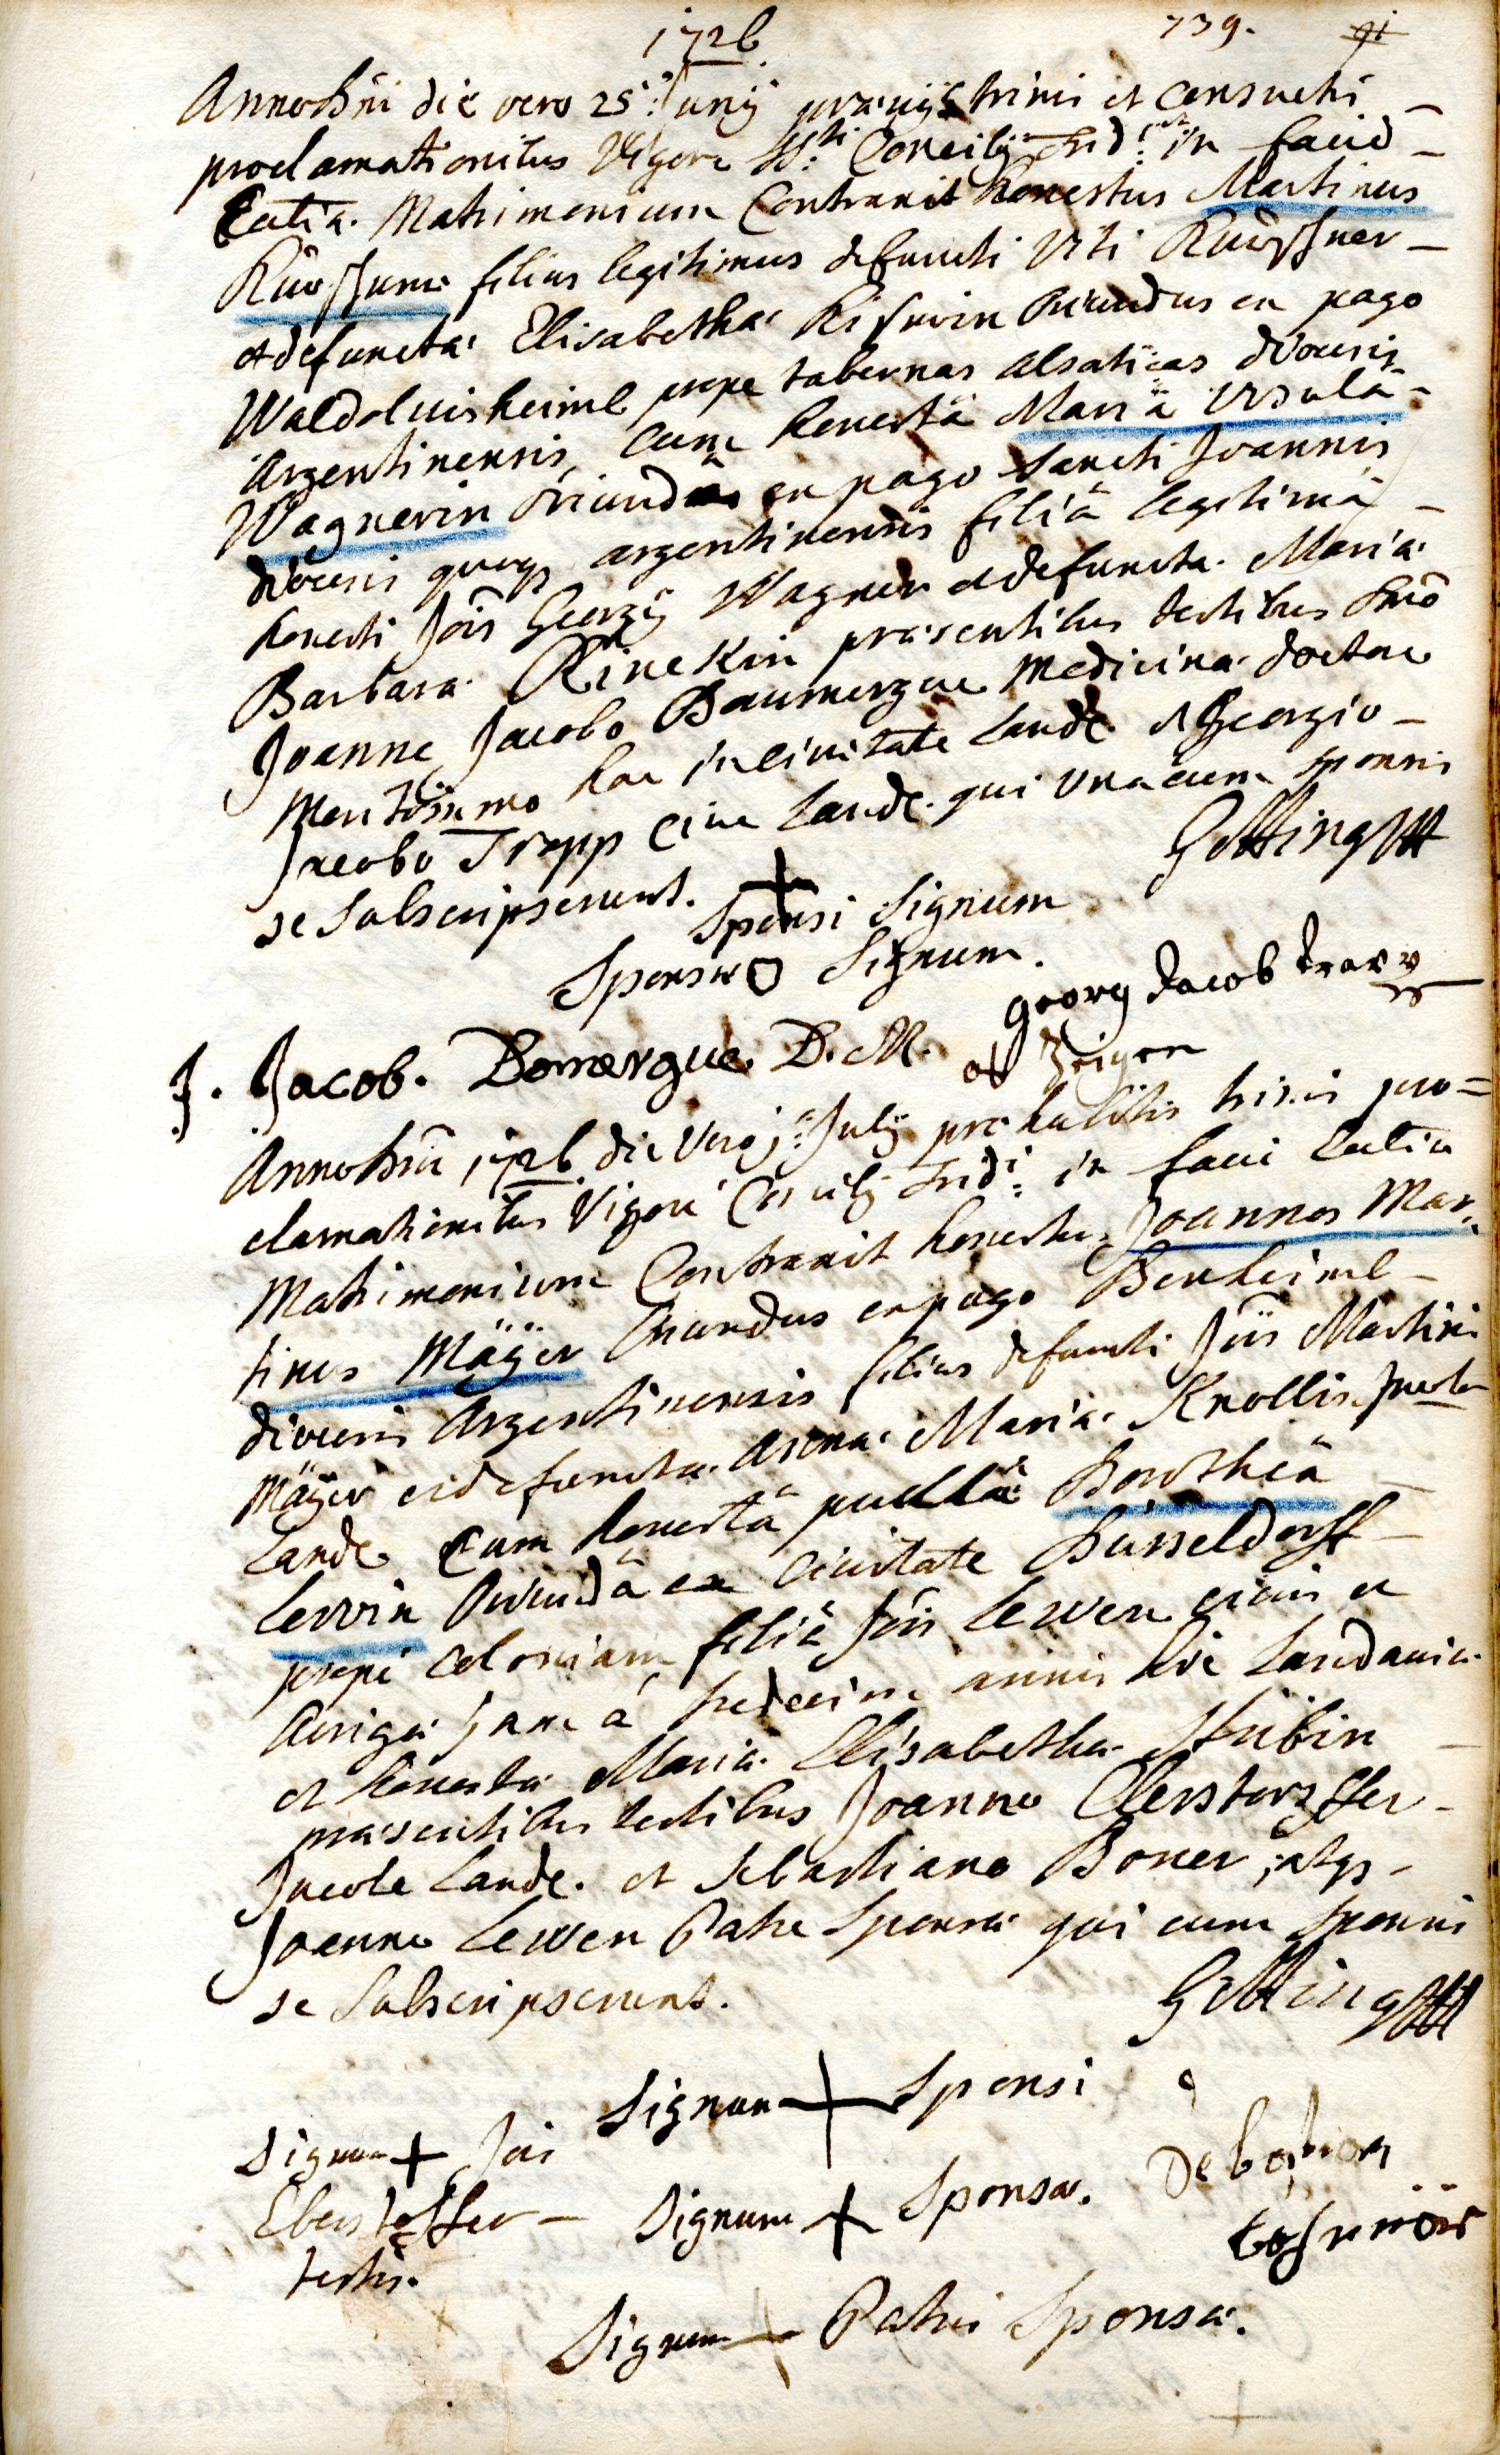 1726 739. 91
Anno Dni die vero 25ª Junij prævijs trinis et consuetis
proclamationibus Vigore SS.ti Concilij Trid: in facie
Ecctiæ. Matrimonium Contraxit honestus Martinus
filius legitimus defuncti Viti
et defunctæ Elisabethæ oriundus ex pago
Waldoluisheimb prope tabernas alsaticas diocesis
argentinensis, cum honestâ Mariâ Ursulâ
Wagnerin oriundâ ex pago Sancti Joannis
diocesis quoq argentinensis filiâ legitimâ
honesti Jois Georgij Wagner et defunctæ Mariæ
Barbaræ Rinekin præsentibus testibus Dno
Joanne Jacobo Baumergue Medicinæ doctore
meritissimo hac in civitate Landæ. et Georgio
Jacobo Trapp cive Landæ. qui una cum sponsis
se Subscripserunt. Götting
+
Sponsi Signum
Sponsæ O Signum.
georg Jacob trapp
J. Jacob. Domergue. D. M. als Zeigen
Anno Dni 1726 die vero 1ª Julij præhabitis trinis pro=
clamationibus Vigore Concilij Trid: in facie Ecctiæ
Matrimonium Contraxit honestus Joannes Mar=
tinus Mäÿer oriundus ex pago Benheimb
diocesis Argentinensis filius defuncti Jois Martini
Mäÿer et defunctæ Annæ Mariæ Knollin Incola
Landæ cum honestâ puellâ Dorotheâ
Lewin oriundâ ex Civitate Düsseldorff
prope Coloniam filiâ Jois Lewen civis et
Aurigæ jam à tredecim annis hic Landaviæ
et honestæ Mariæ Elisabethæ Stübin
præsentibus testibus Joanne Eberstorffer
Incola Landæ. et Sebastiano Boner, atq
Joanne Lewen Patre Sponsæ qui cum Sponsis
se Subscripserunt. Götting
Signum + Sponsi
Signum + Jois
Eberstoffer
testis.
Signum + Sponsæ.
Signum + Patris Sponsæ.